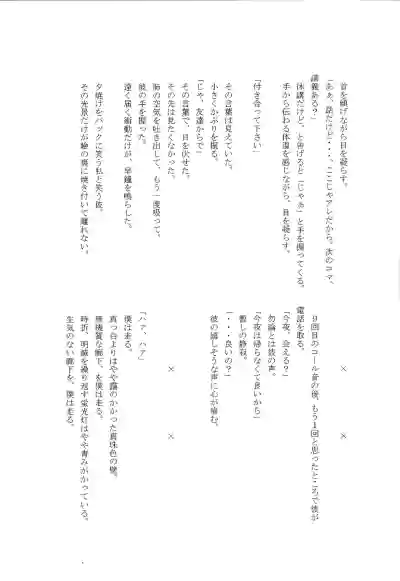 首を傾げながら目を凝らす。
「あぁ、話だけど・・・、ここじゃアレだから。次のコマ、
講義ある?」
休講だけど、と告げると「じゃあ」と手を握ってくる。
手から伝わる体温を感じながら、目を凝らす。
「付き合って下さい」
その言葉は見えていた。
小さくかぶりを振る。
「じゃ、友達からで」
その言葉で、目を伏せた。
その先は見たくなかった。
肺の空気を吐き出して、もう一度吸って、
彼の手を握った。
遠く届く衝動だけが、早鐘を鳴らした。
夕焼けをバックに笑う私と笑う彼。
その光景だけが瞼の裏に焼き付いて離れない。
×　×
9回目のコール音の後、もう1回と思ったところで彼が
電話を取る。
「今夜、会える?」
勿論とは彼の声。
「今夜は帰らなくて良いから」
暫しの静寂。
「・・・良いの?」
彼の嬉しそうな声に心が痛む。
×　×
「ハァ、ハア」
僕は走る。
真っ白よりはやや靄のかかった真珠色の壁。
無機質な廊下、を僕は走る。
時折、明滅を繰り返す蛍光灯はやや青みがかっている。
生気のない廊下を、僕は走る。